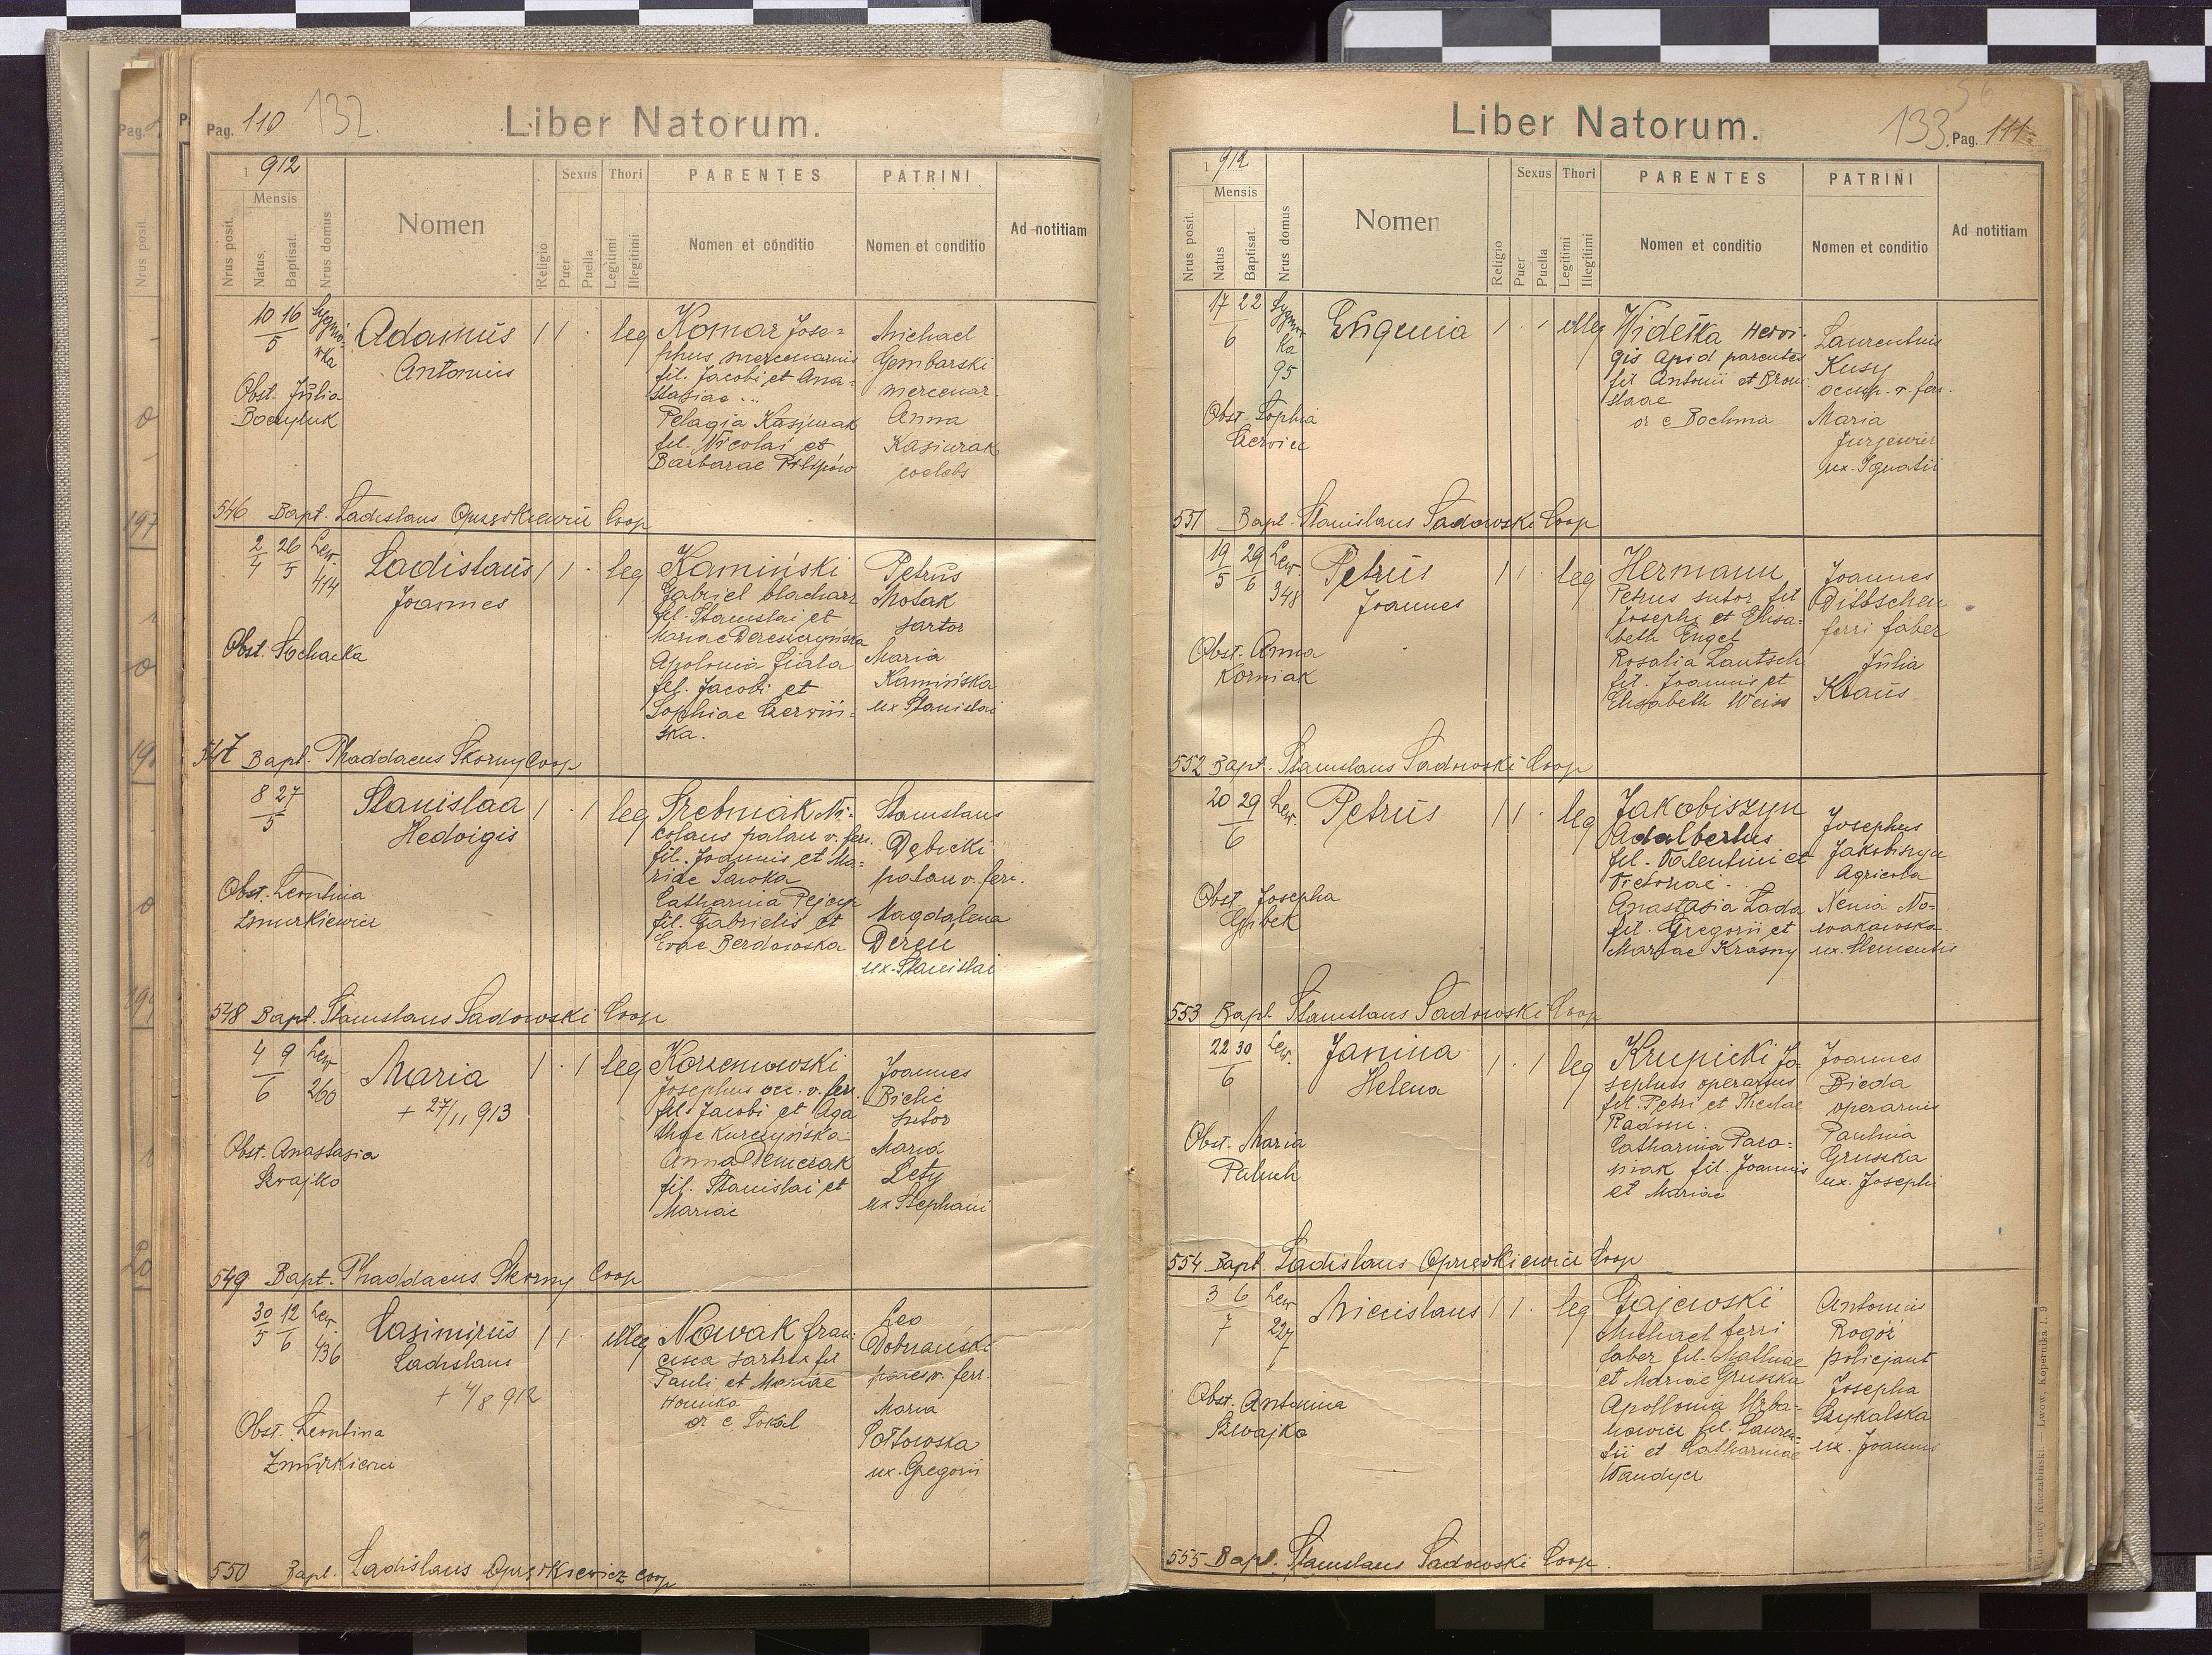 Pag. 110 132.
Liber Natorum.
1912
Mensis
Nrus posit.
Natus.
Baptisat.
Nrus domus
Nomen
Religio
Sexus
Puer
Puella
Thori
Legitimi
Illegitimi
PARENTES
Nomen et conditio
PATRINI
Nomen et conditio
Ad notitiam
10 16
5
Sygnió-
wka
Adamus
Antonius
1 1 · leg
Obst. Julia
Komar Jose-
phus mercenarius
fil. Jacobi et Ana-
stasiae
Pelagia Kasiurak
fil. Nicolai et
Barbarae Filipów
Michael
Gembarski
mercenar.
Anna
Kasiurak
coelebs
546 Bapt. Ladislaus Oprzędkiewicz Coop
2 26
4 5
Lew.
414
Ladislaus
Joannes
1 1 · leg
Obst. Sochacka
Kamiński
Gabriel blacharz
fil. Stanislai et
Mariae Dereszczyńska
Apolonia Fiala
fil. Jacobi et
Sophiae Czerwiń-
ska.
Petrus
Mosak
sartor
Maria
Kamińska
ux Stanislai
547 Bapt. Thaddaeus Skorny Coop
8 27
5
Stanislaa
Hedvigis
1 · 1 leg
Obst. Leontina
Zmurkiewicz
Srebniak Ni-
colaus palacz v. ferr.
fil. Joannis et Ma-
riae Sawka
Catharina
fil. Gabrielis et
Evae Berdowska
Stanislaus
Dębicki
palacz v. ferr.
Magdalena
Deren
ux. Stanislai
548 Bapt. Stanislaus Sadowski Coop
4 9
6
Lew
260
Maria
+ 27/11 913
1 · 1 leg
Obst. Anastasia
Szwajko
Korzeniowski
Josephus occ. v. ferr.
fil. Jacobi et Aga
thae Kurczyńska
Anna Demczak
fil. Stanislai et
Mariae
Joannes
Bielic
sutor
Maria
Lety
ux Stephani
549 Bapt. Thaddaeus Skorny Coop
30 12
5 6
Lew
436
Casimirus
Ladislaus
+ 4/8 912
1 1 · illeg
Obst. Leontina
Zmurkiewicz
Nowak fran-
cisca sartrix fil
Pauli et Mariae
or e Sokal
Leo
Dobrzański
v. ferr.
Maria
Sołtowska
ux. Gregorii
550 Bapt. Ladislaus Oprzędkiewicz coop
Liber Natorum.
133. Pag. 111
56
1912
Mensis
Nrus posit.
Natus
Baptisat.
Nrus domus
Nomen
Religio
Sexus
Puer
Puella
Thori
Legitimi
Illegitimi
PARENTES
Nomen et conditio
PATRINI
Nomen et conditio
Ad notitiam
17 22
6
Sygniów-
ka
95
Eugenia
1 · 1 illeg
Obst. Sophia
Widełka Hedvi-
gis apud parentes
fil Antonii et Broni-
slaae
or e Bochnia
Laurentius
Kusy
occup. v. ferr.
Maria
Jurjewicz
ux. Ignatii
551 Bapt. Stanislaus Sadowski Coop
19 29
5 6
Lew.
348
Petrus
Joannes
1 1 · leg
Obst. Anna
Korniak
Hermann
Petrus sutor fil
Josephi et Elisa-
beth Engel
Rosalia Lautsch
fil. Joannis et
Elisabeth Weiss
Joannes
Dittschen
ferri faber
Julia
Kraus
552 Bapt. Stanislaus Sadowski Coop
20 29
6
Lew.
Petrus
1 1 · leg
Obst. Josepha
Gribek
Jakobiszyn
Adalbertus
fil. Valentini et
Victoriae.
Anastasia Lada
fil. Gregorii et
Mariae Krasny
Josephus
Jakobiszyn
Agricola
Xenia No-
wakowska
ux. Clementis
553 Bapt. Stanislaus Sadowski Coop
22 30
6
Lew.
Janina
Helena
1 · 1 leg
Obst. Maria
Paluch
Krupicki Jo-
sephus operarius
fil. Petri et Theclae
Radom.
Catharina Para-
niak fil. Joannis
et Mariae
Joannes
Bieda
operarius
Paulina
Gruszka
ux. Josephi
554 Bapt. Ladislaus Oprzędkiewicz Coop
3 6
7
Lew
227
Miecislaus
1 1 · leg
Obst. Antonina
Szwajko
Gajewski
Michael ferri
faber fil. Mathiae
et Mariae Gruszka
Apollonia Urba-
nowicz fil. Lauren-
tii et Catharinae
Wandycz
Antonius
Rogóż
policjant
Josepha
Szykalska
ux. Joannis
555 Bapt. Stanislaus Sadowski Coop.
Lwów, Kopernika l. 9